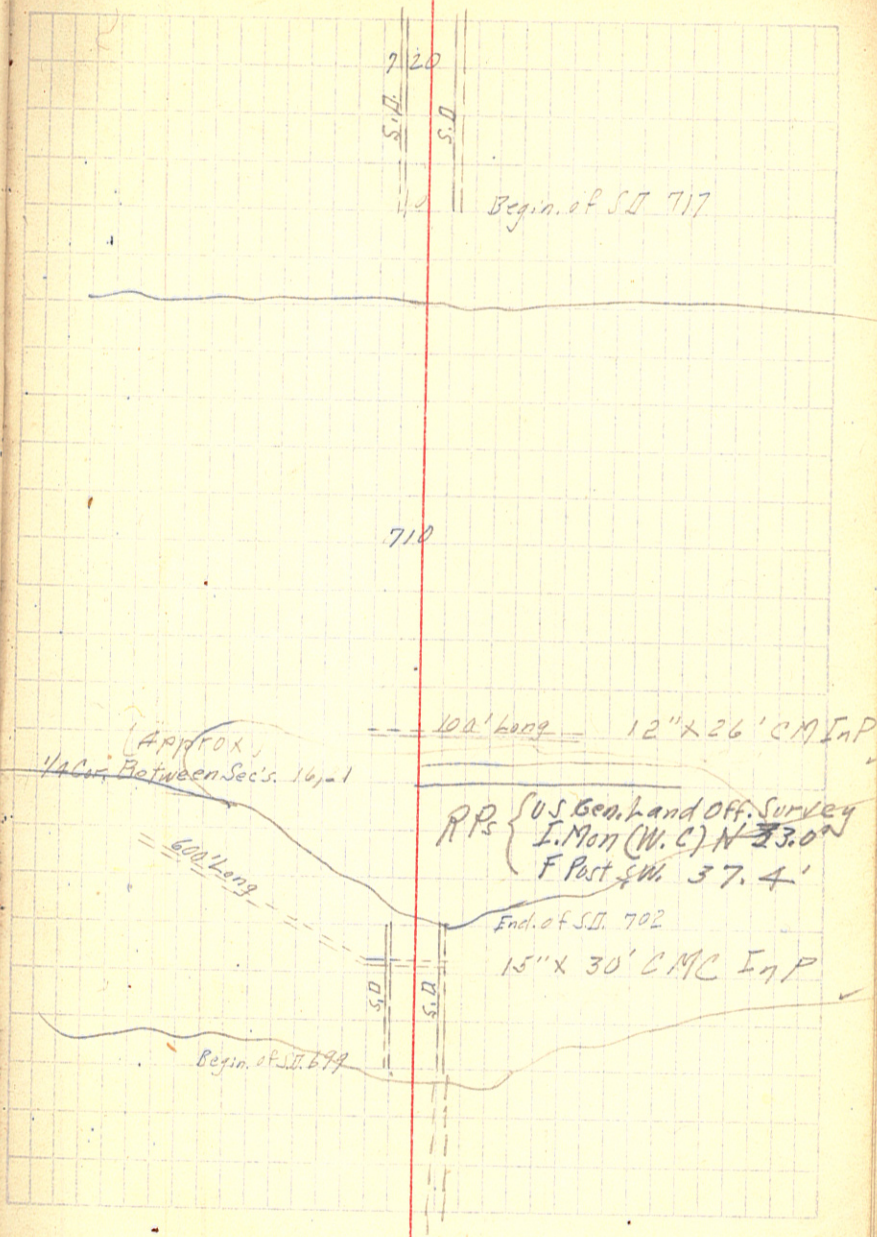 720
S.D.
S.D
Begin. of S.D. 717
710
100' Long
12" X 26' CM InP
(Approx)
1/4 Cor. Between Sec's. 16,
RPs { US Gen. Land Off. Survey
I. Mon (W.C) N 23.0'
F Post SW. 37.4'
600' Long
End. of S.D. 702
15" X 30' CMC In P
S.D
S.D
Begin. of S.D. 699